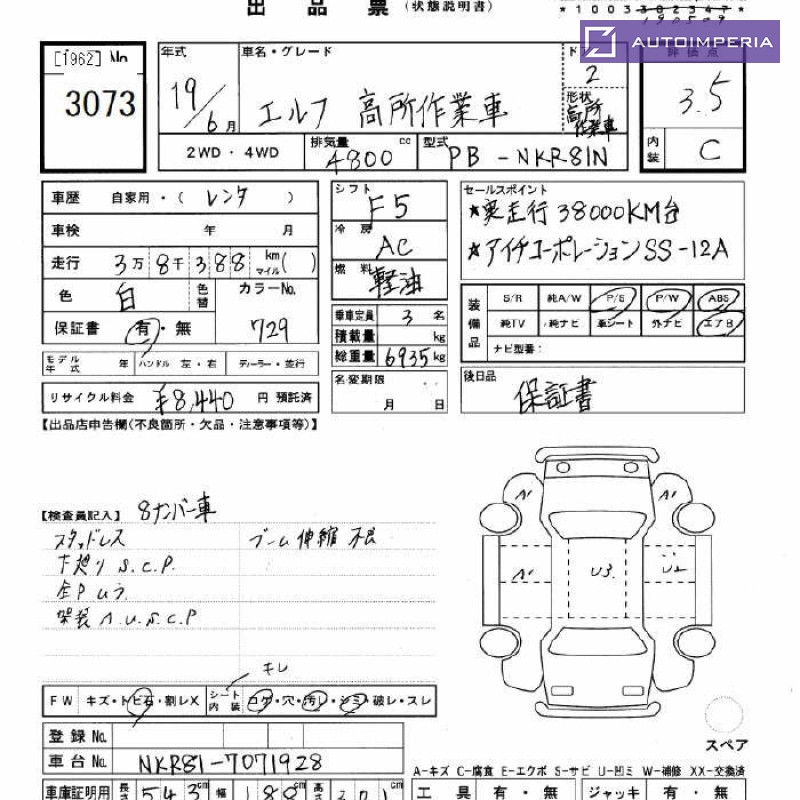 出品票（状態説明書）
*1003382347*
190509
AUTOIMPERIA
[1962] No
3073
年式
19/6月
車名・グレード
エルフ 高所作業車
ドア
2
形状
高所作業車
評価点
3.5
内装
C
2WD・4WD
排気量
4800 cc
型式
PB-NKR81N
車歴 自家用・（レンタ）
車検 年 月
走行 3万8千388 km マイル( )
色 白 色替 カラーNo. 729
保証書 有・無
モデル年式 年 ハンドル 左・右 ディーラー・並行
リサイクル料金 ¥8,440 円 預託済
シフト
F5
冷房
AC
燃料
軽油
乗車定員 3 名
積載量 kg
総重量 6935 kg
名変期限
月 日
セールスポイント
★実走行38000KM台
★アイチコーポレーションSS-12A
装備品
S/R 純A/W P/S P/W ABS
純TV 純ナビ 革シート 外ナビ エアB
ナビ型番：
後日品
保証書
【出品店申告欄(不良箇所・欠品・注意事項等)】
【検査員記入】 8ナンバー車
スタッドレス
下廻りS.C.P.
全Puう
架装A.U.S.C.P
ブーム伸縮不良
キレ
A1
A1
A1
U3.
U2
スペア
FW キズ・トビ石・割レX シート内装 コゲ・穴・汚レ・シミ・破レ・スレ
登録No.
車台No. NKR81-7071928
A-キズ C-腐食 E-エクボ S-サビ U-凹ミ W-補修 XX-交換済
車庫証明用 長さ 543cm 幅 188cm 高さ 301cm
工具 有・無 ジャッキ 有・無